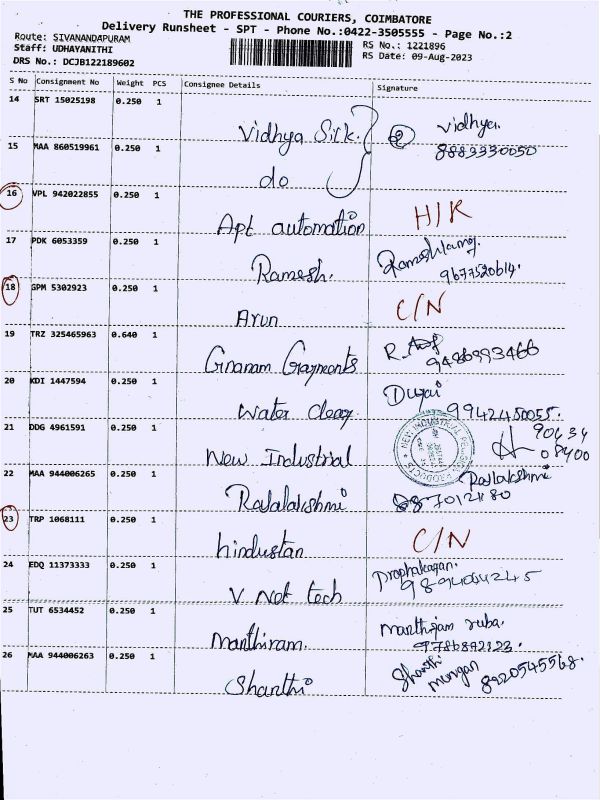 THE PROFESSIONAL COURIERS, COIMBATORE
Delivery Runsheet - SPT - Phone No.:0422-3505555 - Page No.:2
Route: SIVANANDAPURAM
Staff: UDHAYANITHI
DRS No.: DCJB122189602
RS No.: 1221896
RS Date: 09-Aug-2023
S No Consignment No Weight PCS Consignee Details Signature
14 SRT 15025198 0.250 1
Vidhya Silk. vidhya.
15 MAA 860519961 0.250 1
8889330050
do
16 VPL 942022855 0.250 1
Apt automation H/K
17 PDK 6053359 0.250 1
Ramesh.
9677520614.
18 GPM 5302923 0.250 1
Arun C/N
19 TRZ 325465963 0.640 1
Gnanam Garments
9486993466
20 KDI 1447594 0.250 1
Water
Durai
9942450055.
21 DDG 4961591 0.250 1
New Industrial
90434
08400
NEW INDUSTRIAL
PRODUCTS
22 MAA 944006265 0.250 1
Rajalakshmi
Rajalakshmi
23 TRP 1068111 0.250 1
hindustan C/N
24 EDQ 11373333 0.250 1
V Net tech
Prabhakaran.
25 TUT 6534452 0.250 1
Manthiram.
9786892123.
26 MAA 944006263 0.250 1
Shanthi
Shanthi
murugan
8220545568.